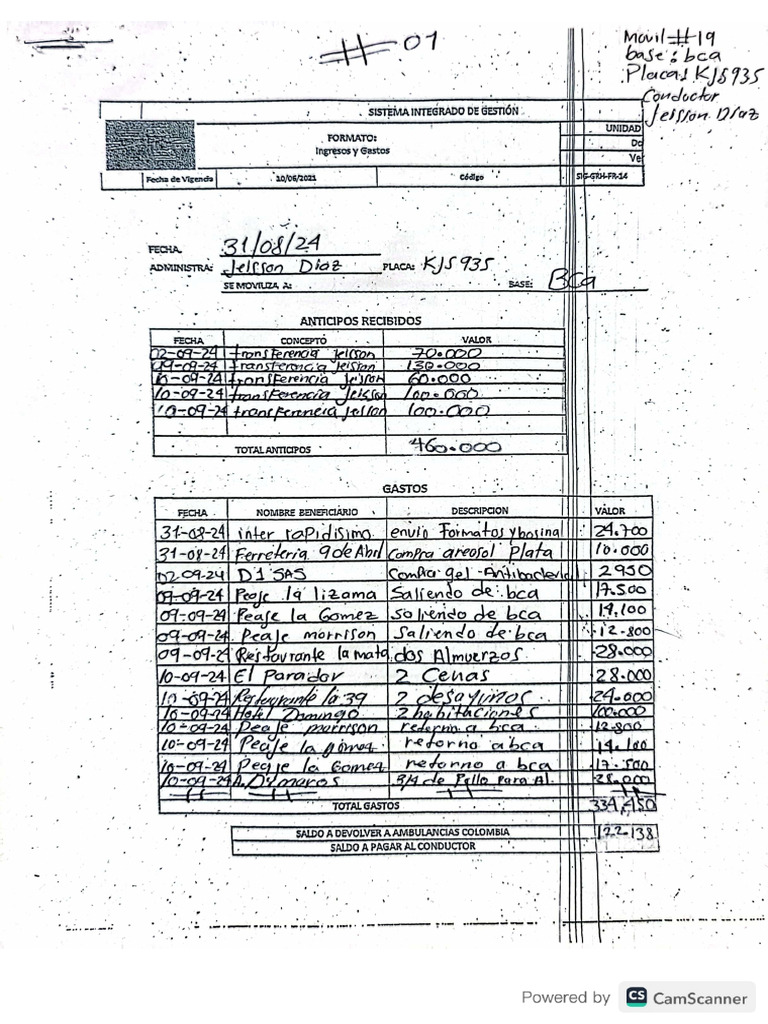 # 01
Movil # 19
base: bca
Placas KJS935
Conductor
Jeisson Diaz
SISTEMA INTEGRADO DE GESTIÓN
FORMATO:
Ingresos y Gastos
UNIDAD
Do
Ve
Fecha de Vigencia 10/06/2021 Código SIG-GRH-FR-14
FECHA 31/08/24
ADMINISTRA: Jeisson Diaz PLACA: KJS 935
SE MOVILIZA A: BASE: Bca
ANTICIPOS RECIBIDOS
FECHA CONCEPTO VALOR
02-09-24 transferencia Jeisson 70.000
09-09-24 transferencia Jeisson 130.000
10-09-24 transferencia Jeisson 60.000
10-09-24 transferencia Jeisson 100.000
10-09-24 transferencia Jeisson 100.000
TOTAL ANTICIPOS 460.000
GASTOS
FECHA NOMBRE BENEFICIARIO DESCRIPCION VALOR
31-08-24 inter rapidisimo envio Formatos y bosina 24.700
31-08-24 Ferreteria 9 de Abril compra areosol Plata 10.000
02-09-24 D1 SAS Compra gel-Antibacterial 2950
09-09-24 Peaje la lizama Saliendo de bca 17.500
09-09-24 Peaje la Gomez saliendo de bca 14.100
09-09-24 Peaje morrison saliendo de bca 12.800
09-09-24 Restaurante la mata dos Almuerzos 28.000
10-09-24 El Parador 2 Cenas 28.000
10-09-24 Restaurante la 39 2 desayunos 24.000
10-09-24 Hotel Domingo 2 habitaciones 100.000
10-09-24 Peaje morrison retorno a bca 12.800
10-09-24 Peaje la gomez retorno a bca 14.100
10-09-24 Peaje la Gomez retorno a bca 17.500
10-09-24 3/4 de Pollo Para Al. 28.000
TOTAL GASTOS 334,450
SALDO A DEVOLVER A AMBULANCIAS COLOMBIA 122.138
SALDO A PAGAR AL CONDUCTOR
Powered by CS CamScanner